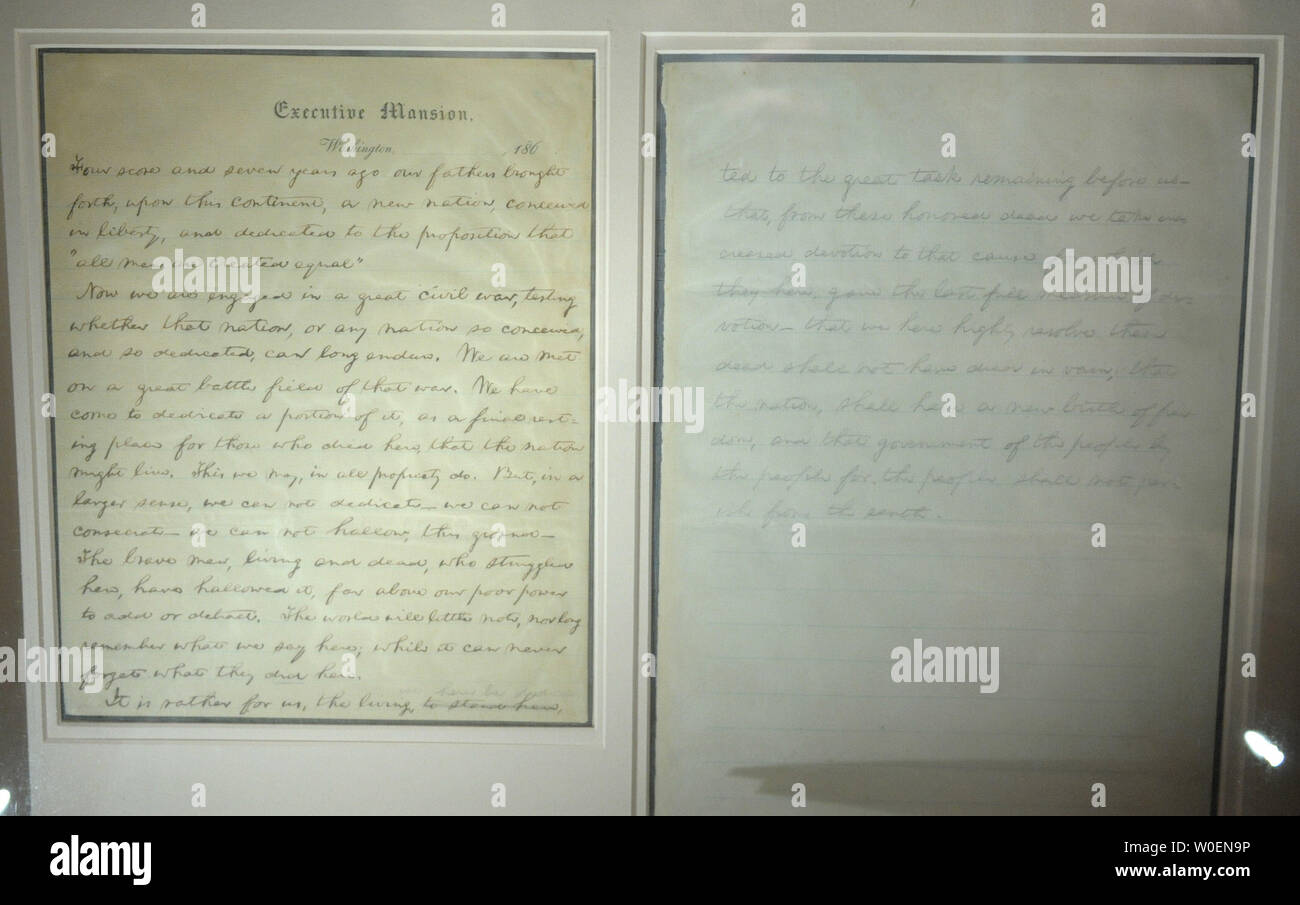 Executive Mansion,
Washington, 186
Four score and seven years ago our fathers brought
forth, upon this continent, a new nation, conceived
in liberty, and dedicated to the proposition that
"all men are created equal"
Now we are engaged in a great civil war, testing
whether that nation, or any nation so conceived,
and so dedicated, can long endure. We are met
on a great battle field of that war. We have
come to dedicate a portion of it, as a final rest-
ing place for those who died here, that the nation
might live. This we may, in all propriety do. But, in a
larger sense, we can not dedicate— we can not
consecrate— we can not hallow, this ground—
The brave men, living and dead, who struggled
here, have hallowed it, far above our poor power
to add or detract. The world will little note, nor long
remember what we say here; while it can never
forget what they did here.
we here be dedica-
It is rather for us, the living, to stand here,
ted to the great task remaining before us—
that, from these honored dead we take in-
creased devotion to that cause for which
they here, gave the last full measure of de-
votion— that we here highly resolve these
dead shall not have died in vain; that
the nation, shall have a new birth of free-
dom, and that government of the people by
the people for the people shall not per-
ish from the earth.
alamy
alamy
Image ID: W0EN9P
www.alamy.com